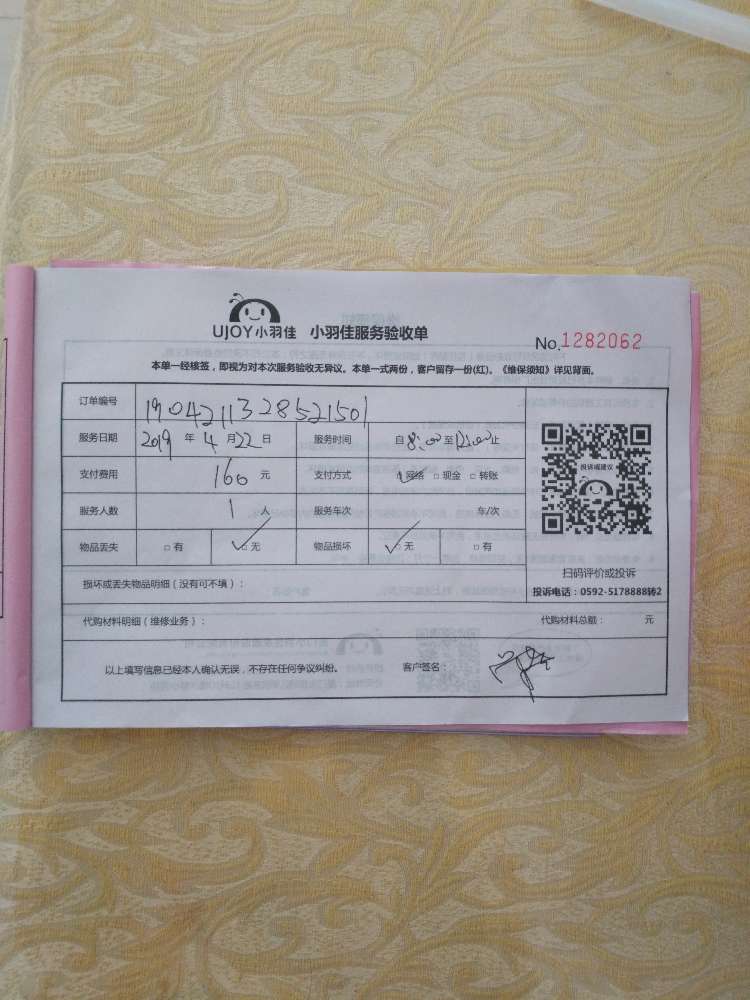 UJOY小羽佳 小羽佳服务验收单
No.1282062
本单一经核签，即视为对本次服务验收无异议。本单一式两份，客户留存一份(红)。《维保须知》详见背面。
订单编号 1904211328521501
服务日期 2019 年 4 月 22 日 服务时间 自 8:00 至 12:00 止
支付费用 160 元 支付方式 网络 □ 现金 □ 转账
服务人数 1 人 服务车次 车/次
物品丢失 □ 有 ✓ 无 物品损坏 ✓ 无 □ 有
投诉或建议
扫码评价或投诉
投诉电话：0592-5178888转2
损坏或丢失物品明细（没有可不填）：
代购材料明细（维修业务）： 代购材料总额： 元
以上填写信息已经本人确认无误，不存在任何争议纠纷。 客户签名：